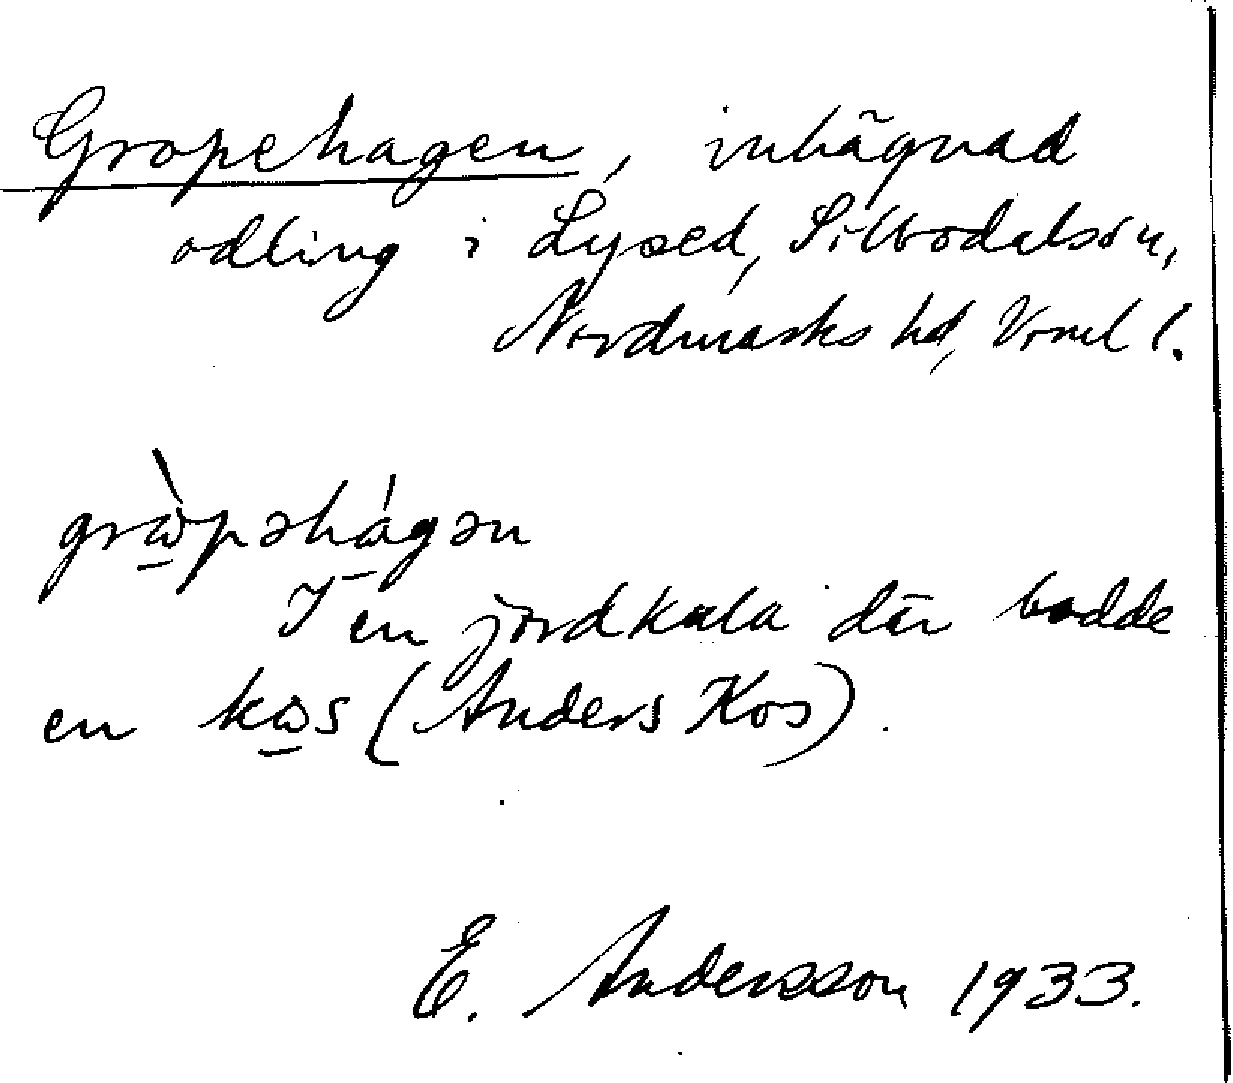 Gropehagen, inhägnad
odling i Lysed, Silbodalssn,
Nordmarks hd, Vrml l.
grɷ̀pəhágən
I en jordkula där bodde
en kɷs (Anders Kos).
E. Andersson 1933.